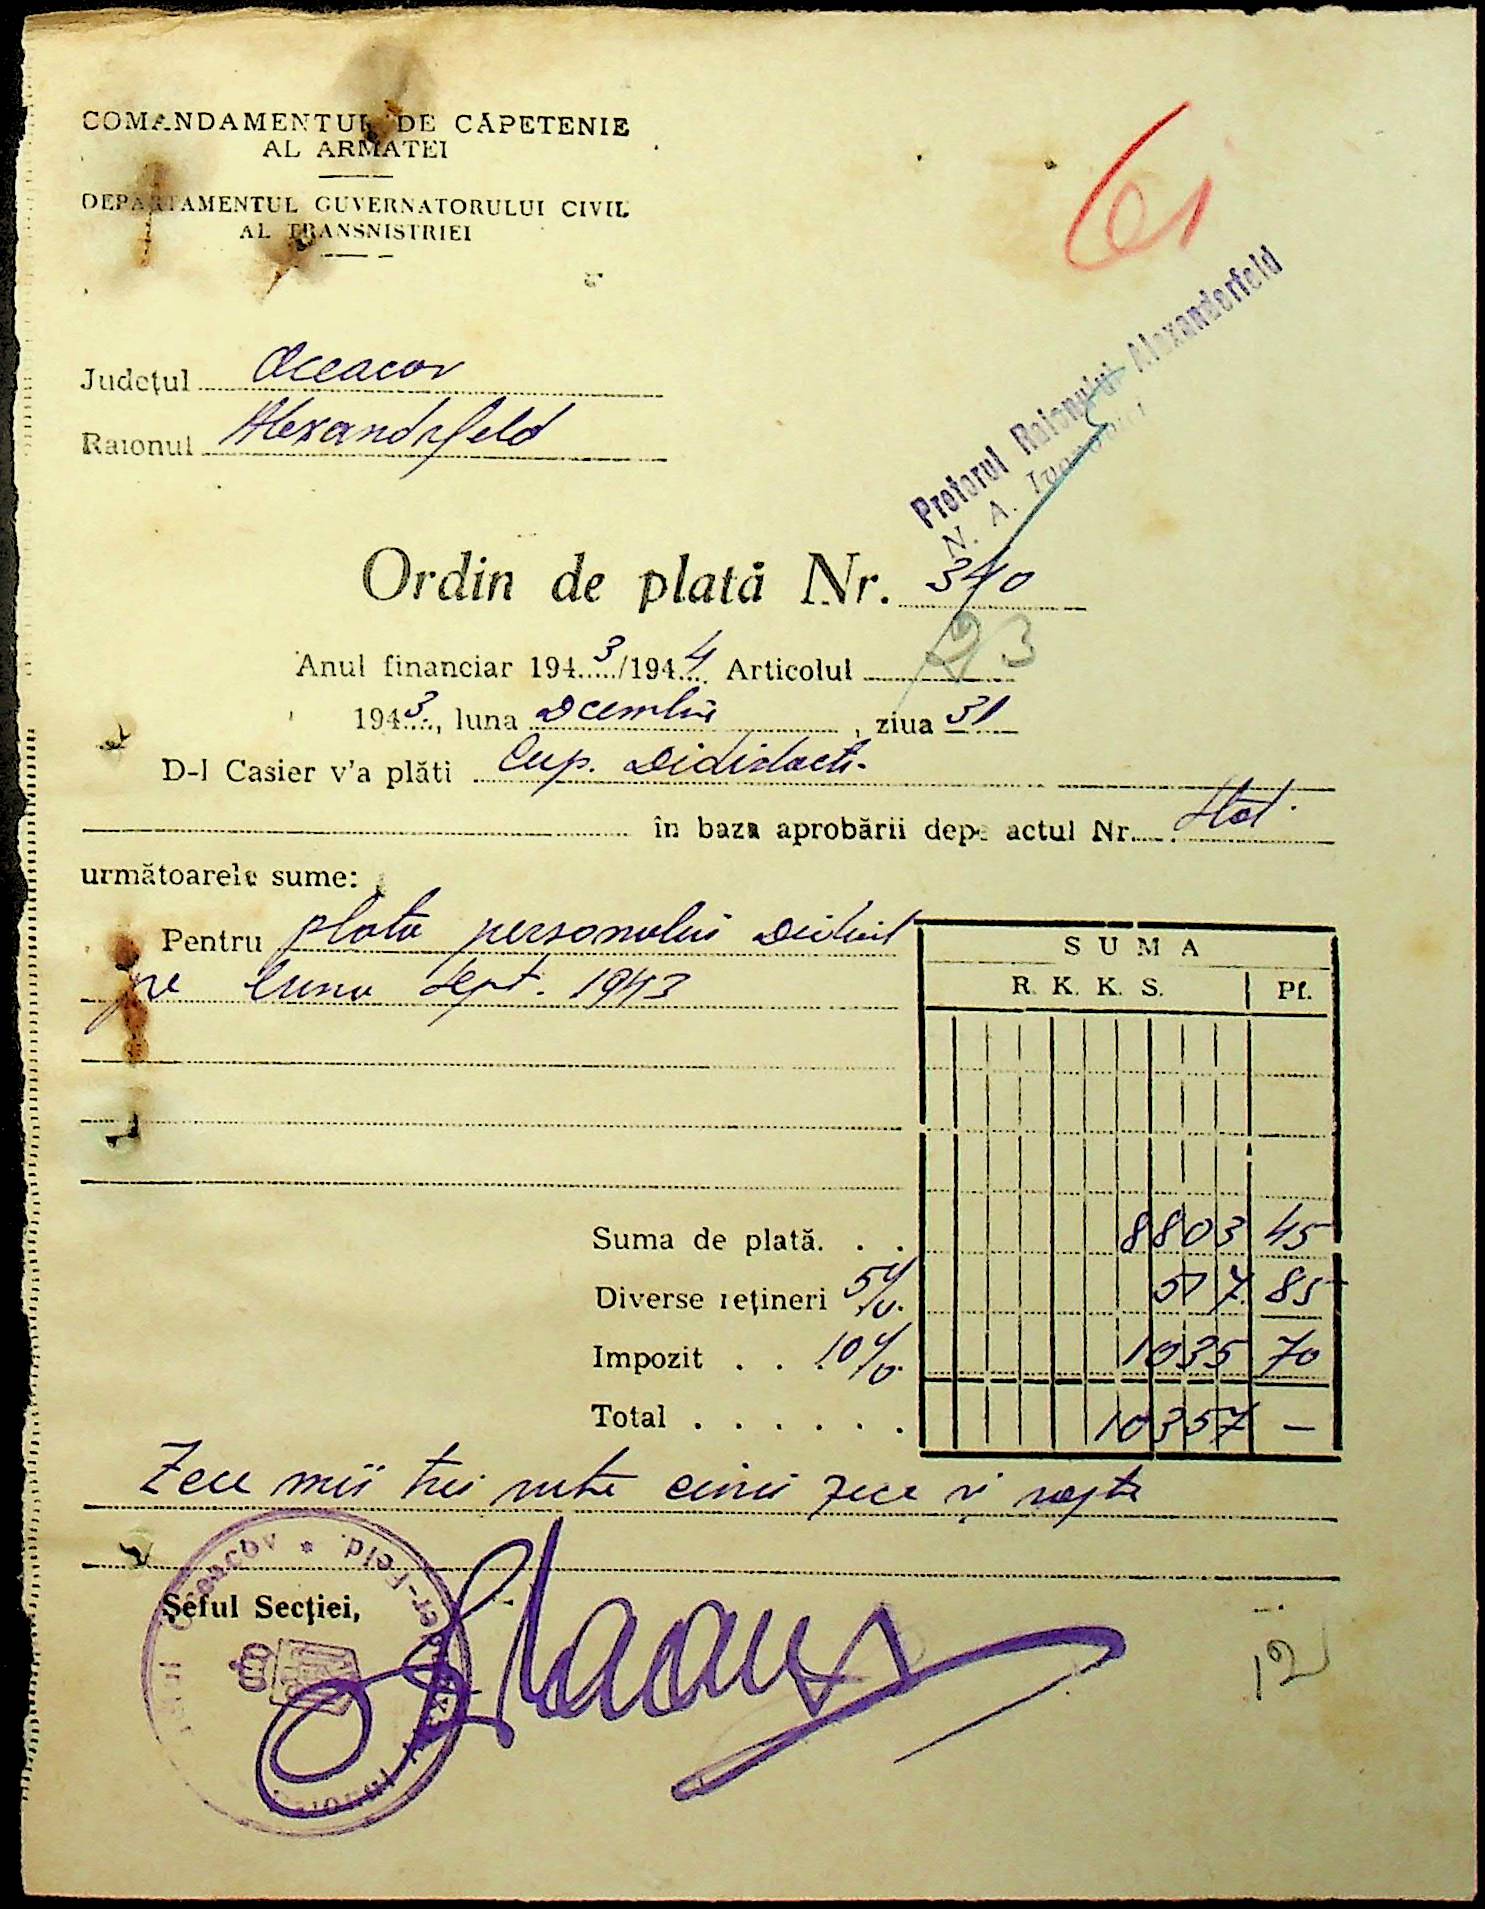 COMANDAMENTUL DE CĂPETENIE
AL ARMATEI
DEPARTAMENTUL GUVERNATORULUI CIVIL
AL TRANSNISTRIEI
61
Pretorul Raionului Alexanderfeld
N. A.
Județul Oceacov
Raionul Alexandrfeld
Ordin de plată Nr. 340
Anul financiar 1943/1944 Articolul 23
1943, luna Dcembrie, ziua 31
D-l Casier v'a plăti Cup. Dididacti-
în baza aprobării depe actul Nr. Stat
următoarele sume:
Pentru plata personalui
pe luna Sept. 1943
SUMA
R. K. K. S. Pf.
Suma de plată. . . 8803 45
Diverse rețineri 5% 517 85
Impozit . . . 10% 1035 70
Total . . . . . . 10357 —
Zece mii trei sute cinci zece și șapte
Șeful Secției,
Oceacov * Alexander-Feld.
12